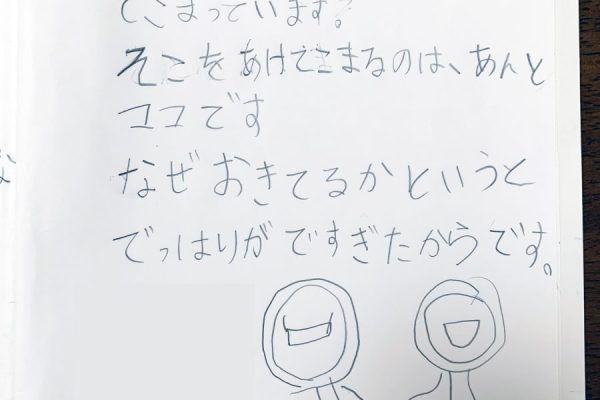 てこまっています。
そこをあけてこまるのは、あんと
ココです
なぜおきてるかというと
でっぱりがですぎたからです。